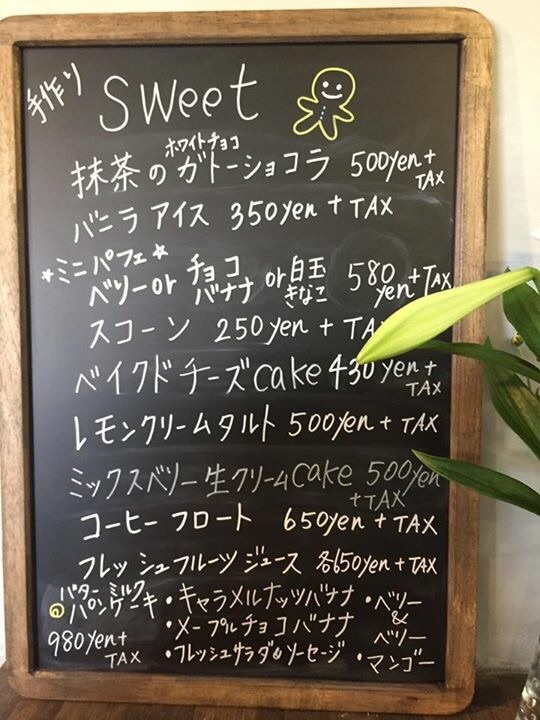 手作り
sweet
ホワイトチョコ
抹茶のガトーショコラ 500yen+TAX
バニラアイス 350yen+TAX
★ミニパフェ★
ベリーor チョコバナナ or 白玉きなこ 580yen+TAX
スコーン 250yen+TA
ベイクドチーズcake 430yen+TAX
レモンクリームタルト 500yen+TAX
ミックスベリー生クリームcake 500yen+TAX
コーヒーフロート 650yen+TAX
フレッシュフルーツジュース 各650yen+TAX
バターミルク
パンケーキ 980yen+TAX
・キャラメルナッツバナナ
・メープルチョコバナナ
・フレッシュサラダ&ソーセージ
・ベリー&ベリー
・マンゴー